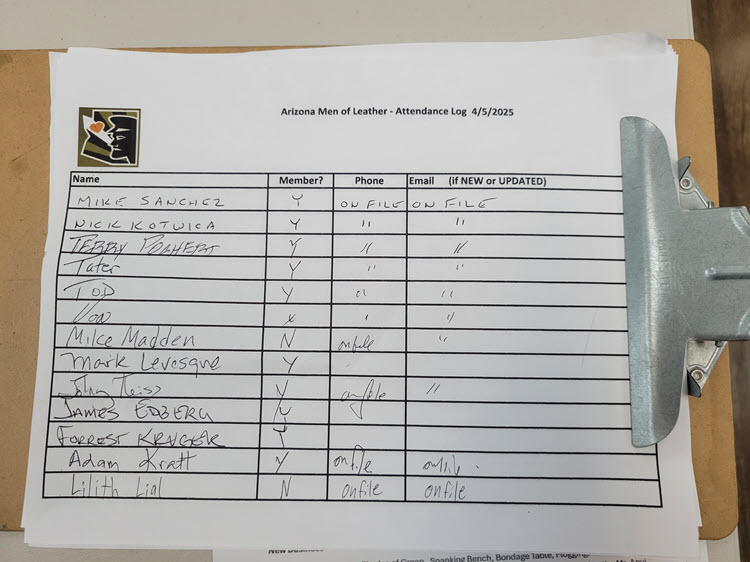 Arizona Men of Leather - Attendance Log 4/5/2025
Name Member? Phone Email (if NEW or UPDATED)
MIKE SANCHEZ Y ON FILE ON FILE
NICK KOTWICA Y " "
TERRY Y " "
Tater Y " "
TOD Y " "
" "
Mike Madden N onfile "
Mark Levesque Y
Y onfile "
JAMES EDBERG Y
FORREST KRUGER Y
Adam Kratt Y onfile onfile
Lilith Lial N onfile onfile
New Business
Spanking Bench, Bondage Table, Flogging